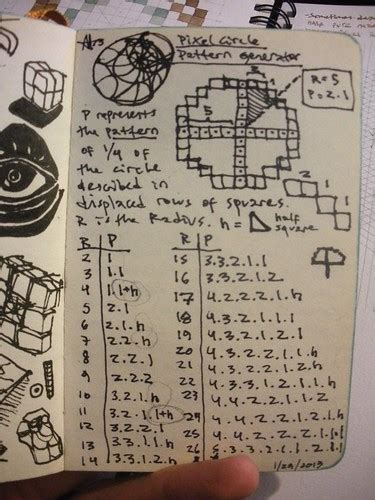 Pixel Circle
Pattern Generator
R=5
P=2.1
P represents
the pattern
of 1/4 of
the circle
described in
displaced rows of squares.
R is the Radius. h = half
square
5
1
2
1
R P
2 1
3 1.1
4 1.1+h
5 2.1
6 2.1.h
7 2.2.h
8 2.2.1
9 2.2.2
10 3.2.1.h
11 3.2.1.1+h
12 3.2.2.1
13 3.3.1.1.h
14 3.3.1.2.h
R P
15 3.3.2.1.1
16 3.3.2.1.2
17 4.2.2.2.1.h
18 4.3.2.1.1.1
19 4.3.2.1.2.1
20 4.3.2.2.1.1.h
21 4.3.2.2.1.2.h
22 4.3.3.1.2.1.h
23 4.4.2.2.1.1.2
24 4.4.2.2.1.2.1.h
25 4.4.2.2.2.1.1
26 5.3.3.2.1.2.1
1/29/2013